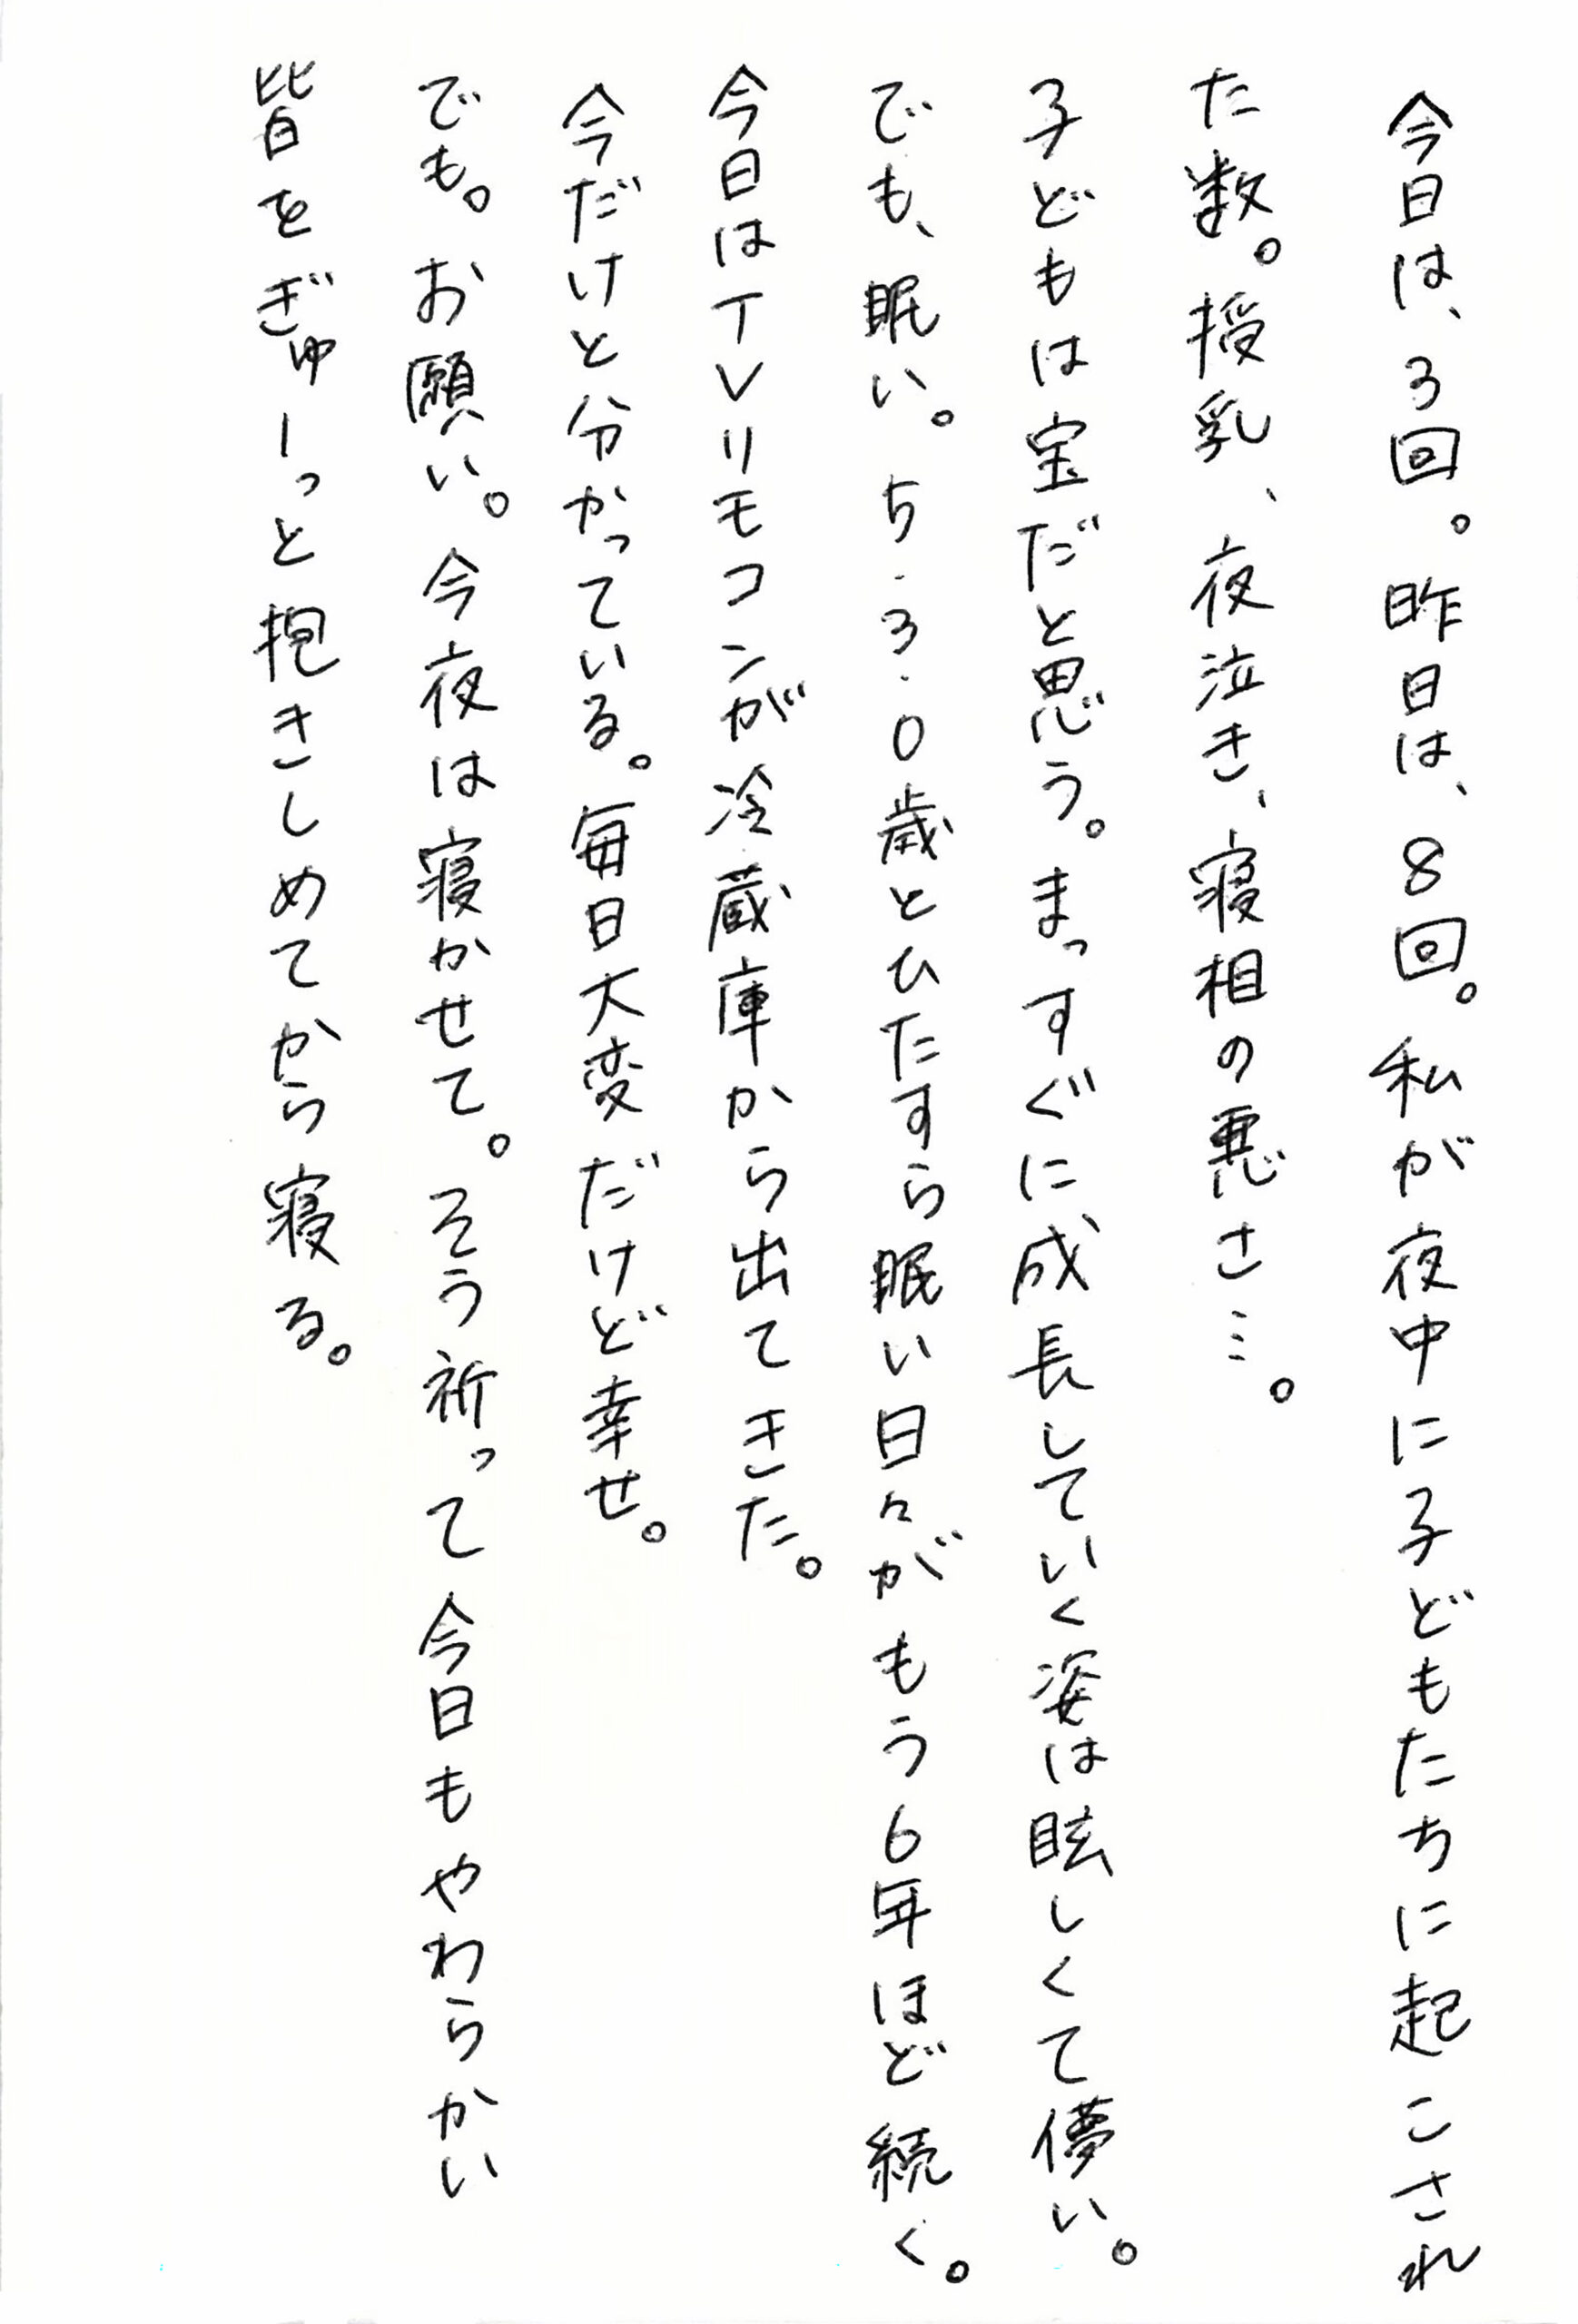 今日は、3回。昨日は、8回。私が夜中に子どもたちに起こされ
た数。授乳、夜泣き、寝相の悪さ…。
子どもは宝だと思う。まっすぐに成長していく姿は眩しくて儚い。
でも、眠い。5・3・0歳とひたすら眠い日々がもう6年ほど続く。
今日はTVリモコンが冷蔵庫から出てきた。
今だけと分かっている。毎日大変だけど幸せ。
でも。お願い。今夜は寝かせて。そう祈って今日もやわらかい
皆をぎゅーっと抱きしめてから寝る。